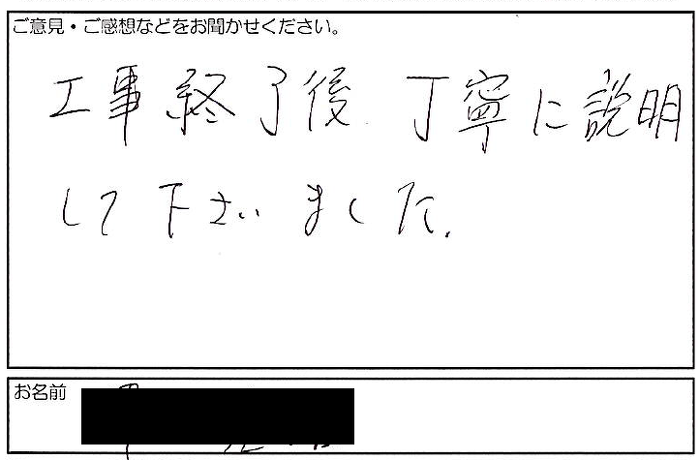 ご意見・ご感想などをお聞かせください。
工事終了後、丁寧に説明
して下さいました。
お名前